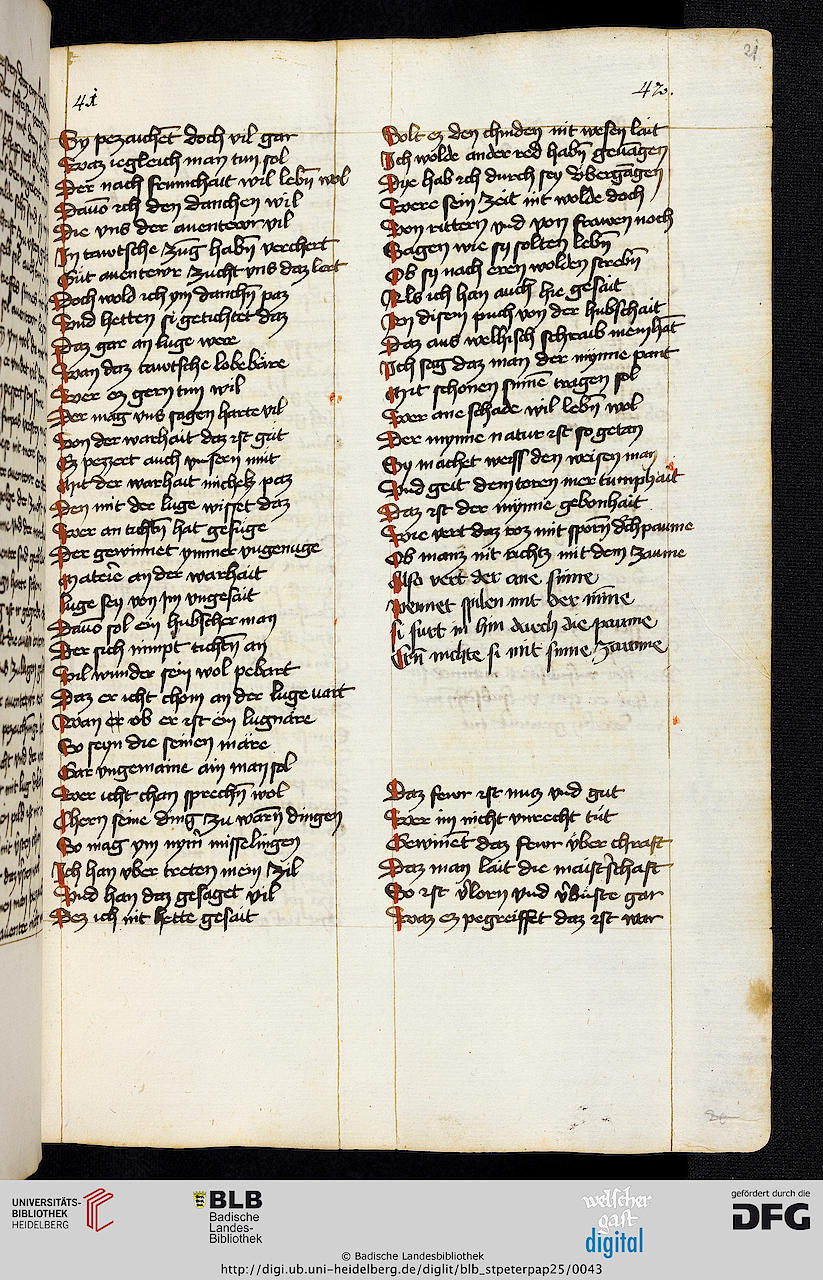 41
Sy pezaichēt doch vil gar
Waz iegleich man tun sol
Der nach frumchait wil lebn̄ wol
Dauō ich den danchen wil
Die vns der auentewr vil
In tawtsche zūg habn̄ verchert
Gūt auentewr zucht vns daz lert
Doch wold ich ym danchn̄ paz
Vnd hetten si getichtet daz
Daz gar an luge were
Wan daz tawtsche lobebäre
Wer ez gern tun wil
Der mag vns sagen harte vil
Von der warhait daz ist gūt
Ez pezzert auch vnsern mut
Mit der warhait michelz paz
Den mit der luge wisset daz
Wer an tichtn̄ hat gefuge
Der gewinnet ymmer vngenuge
Materē an der warhait
Luge sey von im vngesait
Dauō sol ein hubscher man
Der sich nimpt tichtn̄ an
Vil wunder sein wol pebart
Daz er icht chom an der luge vart
Wan er ob er ist ein lugnäre
So seyn die seinen märe
Gar vngemaine ain man sol
Wer icht chan sprechn̄ wol
Chern seine ding zu warn̄ dingen
So mag ym nym̄ misselingen
Ich han vber treten mein zil
Vnd han daz gesaget vil
Dez ich nit hette gesait
42.
21
Wolt ez den chinden nit wesen lait
Ich wolde ander red habn̄ gevangen
Dye hab ich durch sey vbergangen
Were sein zeit nit wolde doch
Von rittern vnd von frawen noch
Sagen wie sy solten lebn̄
Ob sy nach eren wolden strebn̄
Als ich han auch hie gesait
In disem puch von der hubschait
Daz aus welhisch schraib mein hāt
Ich sag daz man der mynne pant
Mit schonen sinnē tragen sol
Wer ane schade wil lebn̄ wol
Der mynne natur ist so getan
Sy machet weiss den weisen man
Vnd geit dem toren mer tumphait
Daz ist der mynne gebonhait
Wie vert daz roz mit sporn̄ dch paume
Ob manz nit richtz mit dem zaume
Also vert der ane sinne
Wennet spilen mit der mīne
si furt in hin durch die paume
Ern̄ richte si mit sinne zaume
Daz fewr ist nuz vnd gut
Wer im nicht vnrecht tūt
Gewinēt daz fewr vber chraft
Daz man lait die maistschaft
So ist vlorn vnd vbuste gar
Waz ez pegreiffet daz ist war
UNIVERSITÄTS-
BIBLIOTHEK
HEIDELBERG
BLB
Badische
Landes-
Bibliothek
welscher
gast
digital
gefördert durch die
DFG
© Badische Landesbibliothek
http://digi.ub.uni-heidelberg.de/diglit/blb_stpeterpap25/0043